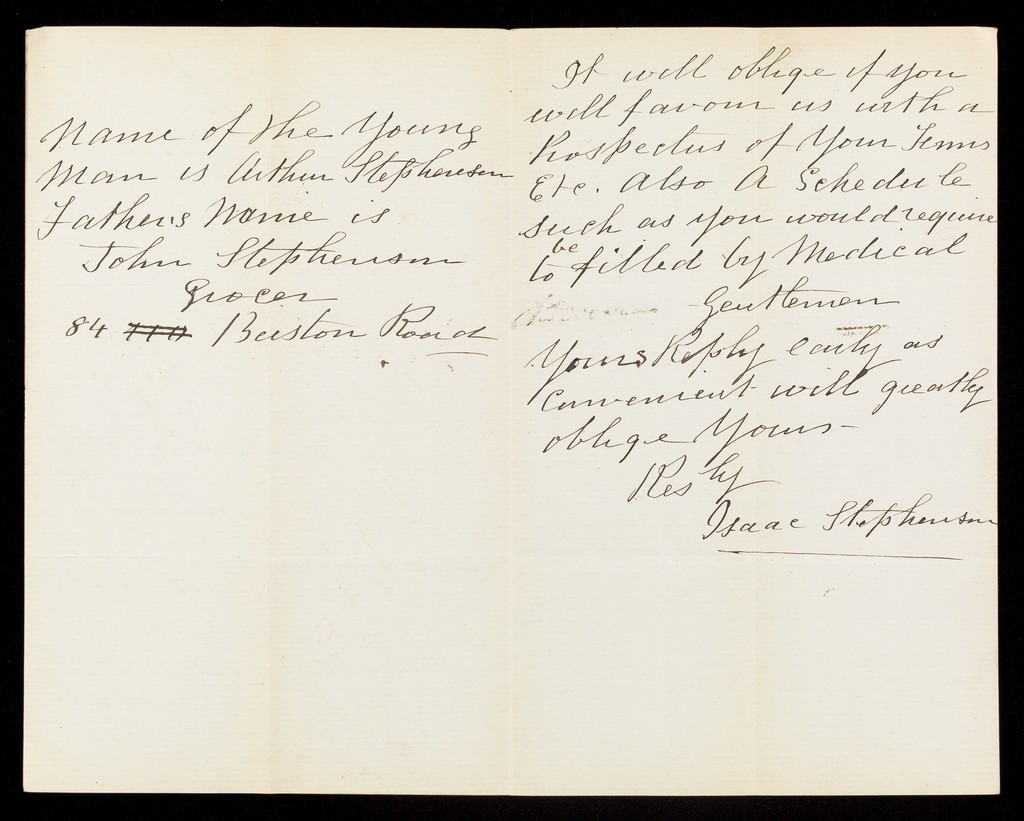 Name of the Young
Man is Arthur Stephenson
Fathers Name is
John Stephenson
Grocer
84 110 Beeston Road
It will oblige if you
will favour us with a
Prospectus of Your Terms
Etc. Also A Schedule
such as you would require
be
to filled by Medical
Gentlemen
Yours Reply early as
Convenient will greatly
oblige Yours -
Resly
Isaac Stephenson